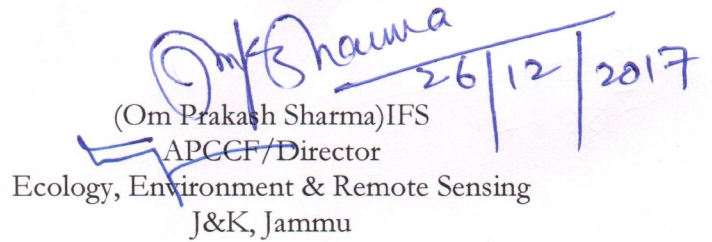 OmkSharma
26/12/2017
(Om Prakash Sharma)IFS
APCCF/Director
Ecology, Environment & Remote Sensing
J&K, Jammu